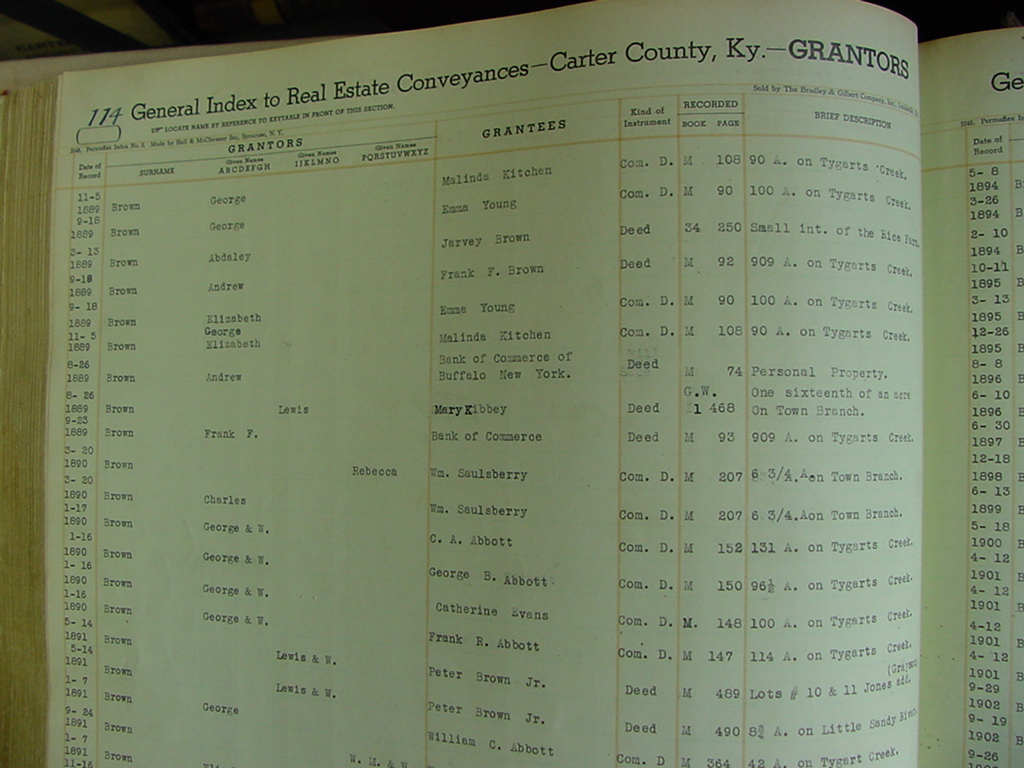 174 General Index to Real Estate Conveyances—Carter County, Ky.—GRANTORS
LOCATE NAME BY REFERENCE TO KEYTABLE IN FRONT OF THIS SECTION.
Sold by The Bradley & Gilbert Company, Inc.
Permaflex Index No. 3. Made by Hall & McChesney Inc, Syracuse, N. Y.
Date of Record SURNAME GRANTORS Given Names ABCDEFGH Given Names IJKLMNO Given Names PQRSTUVWXYZ GRANTEES Kind of Instrument RECORDED BOOK PAGE BRIEF DESCRIPTION
11-5 1889 Brown George Malinda Kitchen Com. D. M 108 90 A. on Tygarts Creek.
9-18 1889 Brown George Emma Young Com. D. M 90 100 A. on Tygarts Creek.
13 1889 Brown Abdaley Jarvey Brown Deed 34 250 Small int. of the Rice Farm
9-18 1889 Brown Andrew Frank F. Brown Deed M 92 909 A. on Tygarts Creek.
9- 18 1889 Brown Elizabeth George Emma Young Com. D. M 90 100 A. on Tygarts Creek.
11- 5 1889 Brown Elizabeth Malinda Kitchen Com. D. M 108 90 A. on Tygarts Creek.
8-26 1889 Brown Andrew Bank of Commerce of Buffalo New York. Deed M 74 Personal Property.
8- 26 1889 Brown Lewis Mary Kibbey Deed G.W. 1 468 One sixteenth of an acre On Town Branch.
9-23 1889 Brown Frank F. Bank of Commerce Deed M 93 909 A. on Tygarts Creek.
3- 20 1890 Brown Rebecca Wm. Saulsberry Com. D. M 207 6 3/4.A.on Town Branch.
3- 20 1890 Brown Charles Wm. Saulsberry Com. D. M 207 6 3/4.Aon Town Branch.
1-17 1890 Brown George & W. C. A. Abbott Com. D. M 152 131 A. on Tygarts Creek.
1-16 1890 Brown George & W. George B. Abbott Com. D. M 150 96½ A. on Tygarts Creek.
1- 16 1890 Brown George & W. Catherine Evans Com. D. M. 148 100 A. on Tygarts Creek.
1-16 1890 Brown George & W. Frank R. Abbott Com. D. M 147 114 A. on Tygarts Creek.
5- 14 1891 Brown Lewis & W. Peter Brown Jr. Deed M 489 Lots # 10 & 11 Jones add. (Grayson
5-14 1891 Brown Lewis & W. Peter Brown Jr. Deed M 490 A. on Little Sandy
1- 7 1891 Brown George William C. Abbott Com. D M 364 42 A. on Tygart Creek.
9- 24 1891 Brown W. M. & W.
1- 7 1891 Brown
11-16
Ge
Permaflex In
Date of Record
5- 8 1894 B
3-26 1894 B
2- 10 1894 B
10-11 1895 B
3- 13 1895 B
12-26 1895 B
8- 8 1896 B
6- 10 1896 B
6- 30 1897 B
12-18 1898 B
6- 13 1899 B
5- 18 1900 B
4- 12 1901 B
4- 12 1901 B
4-12 1901 B
4- 12 1901 B
9-29 1902 B
9- 19 1902 B
9-26